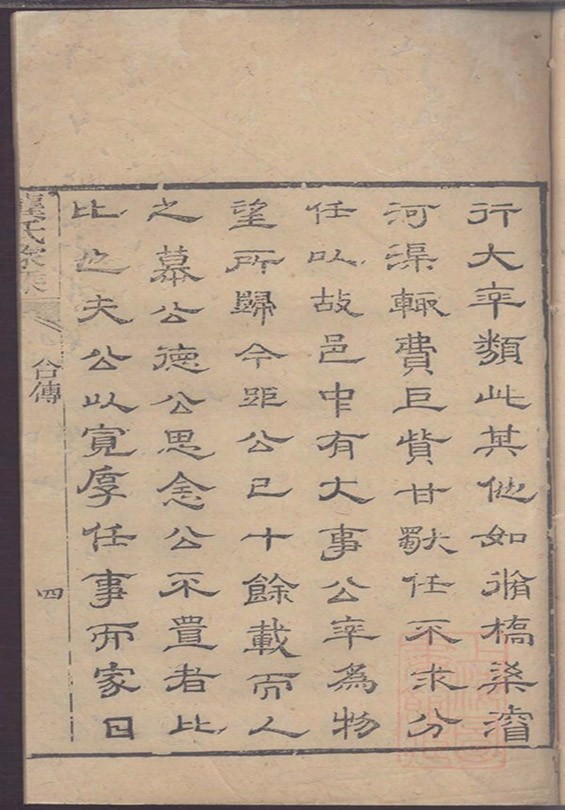 行大率類此其他如脩橋梁濬
河渠輒費巨貲甘獨任不求分
任以故邑中有大事公率為物
望所歸今距公已十餘載而人
之慕公德公思念公不置者比
比也夫公以寬厚任事而家日
氏家
公傳
四